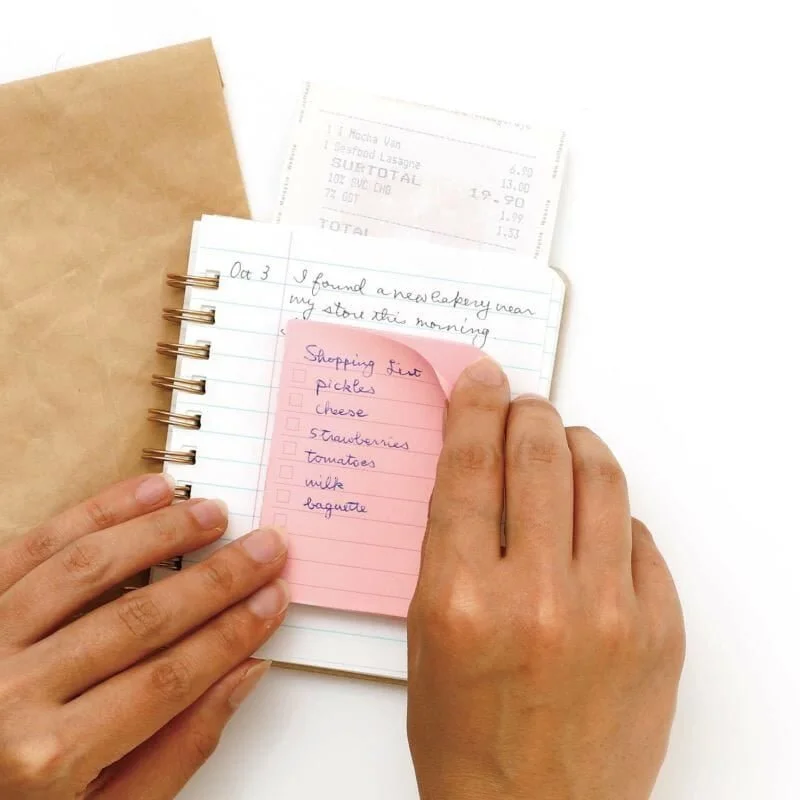 1 Mocha Van 6.90
1 Seafood Lasagne 13.00
SUBTOTAL 19.90
10% SVC CHG 1.99
7% GST 1.53
TOTAL
Oct 3 I found a new bakery near
my store this morning.
Shopping List
pickles
cheese
strawberries
tomatoes
milk
baguette